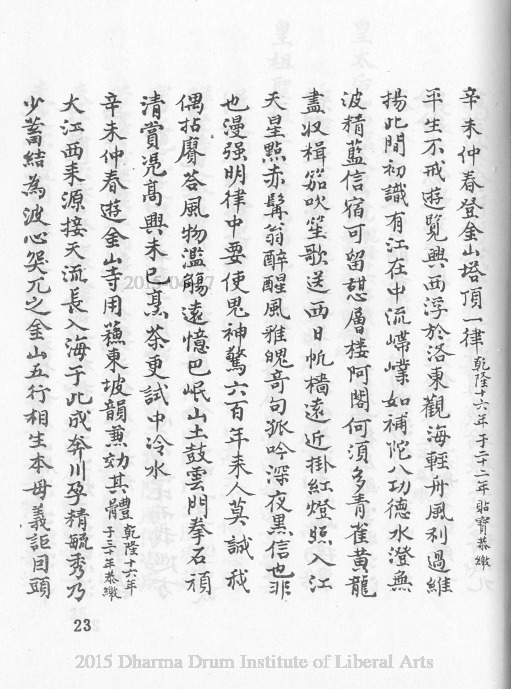 辛未仲春登金山塔頂一律 乾隆十六年于二十二年貼寶恭繳
平生不戒遊覽興西浮於洛東觀海輕舟風利過維
揚此間初識有江在中流㟷嶫如補陀八功德水澄無
波精藍信宿可留憩層樓阿閣何須多青雀黃龍
盡収楫笳吹笙歌送西日帆檣遠近掛紅燈照入江
天星點赤髯翁醉醒風雅魄奇句孤吟深夜黑信也非
也漫强明律中要使鬼神驚六百年來人莫誠我
偶拈賡荅風物濫觴遠憶巴岷山土鼓雲門拳石頑
清賞凭髙興未已烹茶更試中泠水
辛未仲春遊金山寺用蘓東坡韻兼効其體 乾隆十六年于二十年恭繳
大江西來源接天流長入海于此成奔川孕精毓秀乃
少蓄結為波心㷀兀之金山五行相生本母義詎回頭
23
2015 Dharma Drum Institute of Liberal Arts